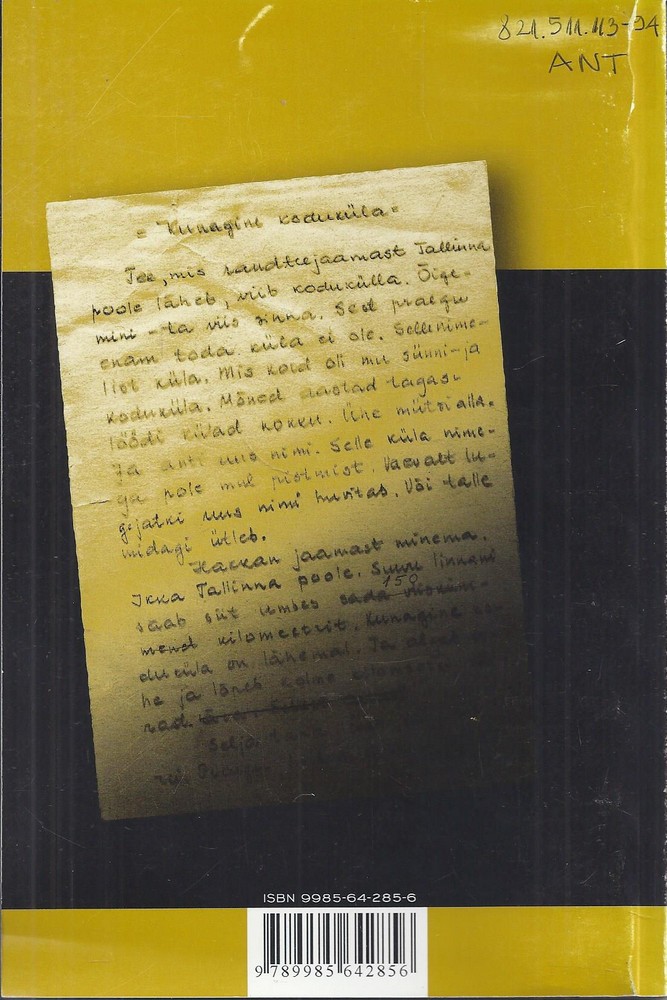 821.511.113-94
ANT
= Kunagine koduküla =
Tee, mis raudteejaamast Tallinna
poole läheb, viib kodukülla. Õige-
mini - ta viis sinna. Sest praegu
enam toda küla ei ole. Sellenime-
list küla. Mis kord oli mu sünni- ja
koduküla. Mõned aastad tagasi
löödi külad kokku. Ühe mütsi alla.
Ja anti uus nimi. Selle küla nime-
ga pole mul pistmist. Vaevalt lu-
gejatki uus nimi huvitab. Või talle
midagi ütleb.
Hakkan jaamast minema.
Ikka Tallinna poole. Suure linnani
150
saab siit umbes sada viisküm-
mend kilomeetrit. Kunagine ko-
duküla on lähemal. Ta algab
he ja lõpeb kolme kilomeetri
rad.
Selja taga
ISBN 9985-64-285-6
9 789985 642856